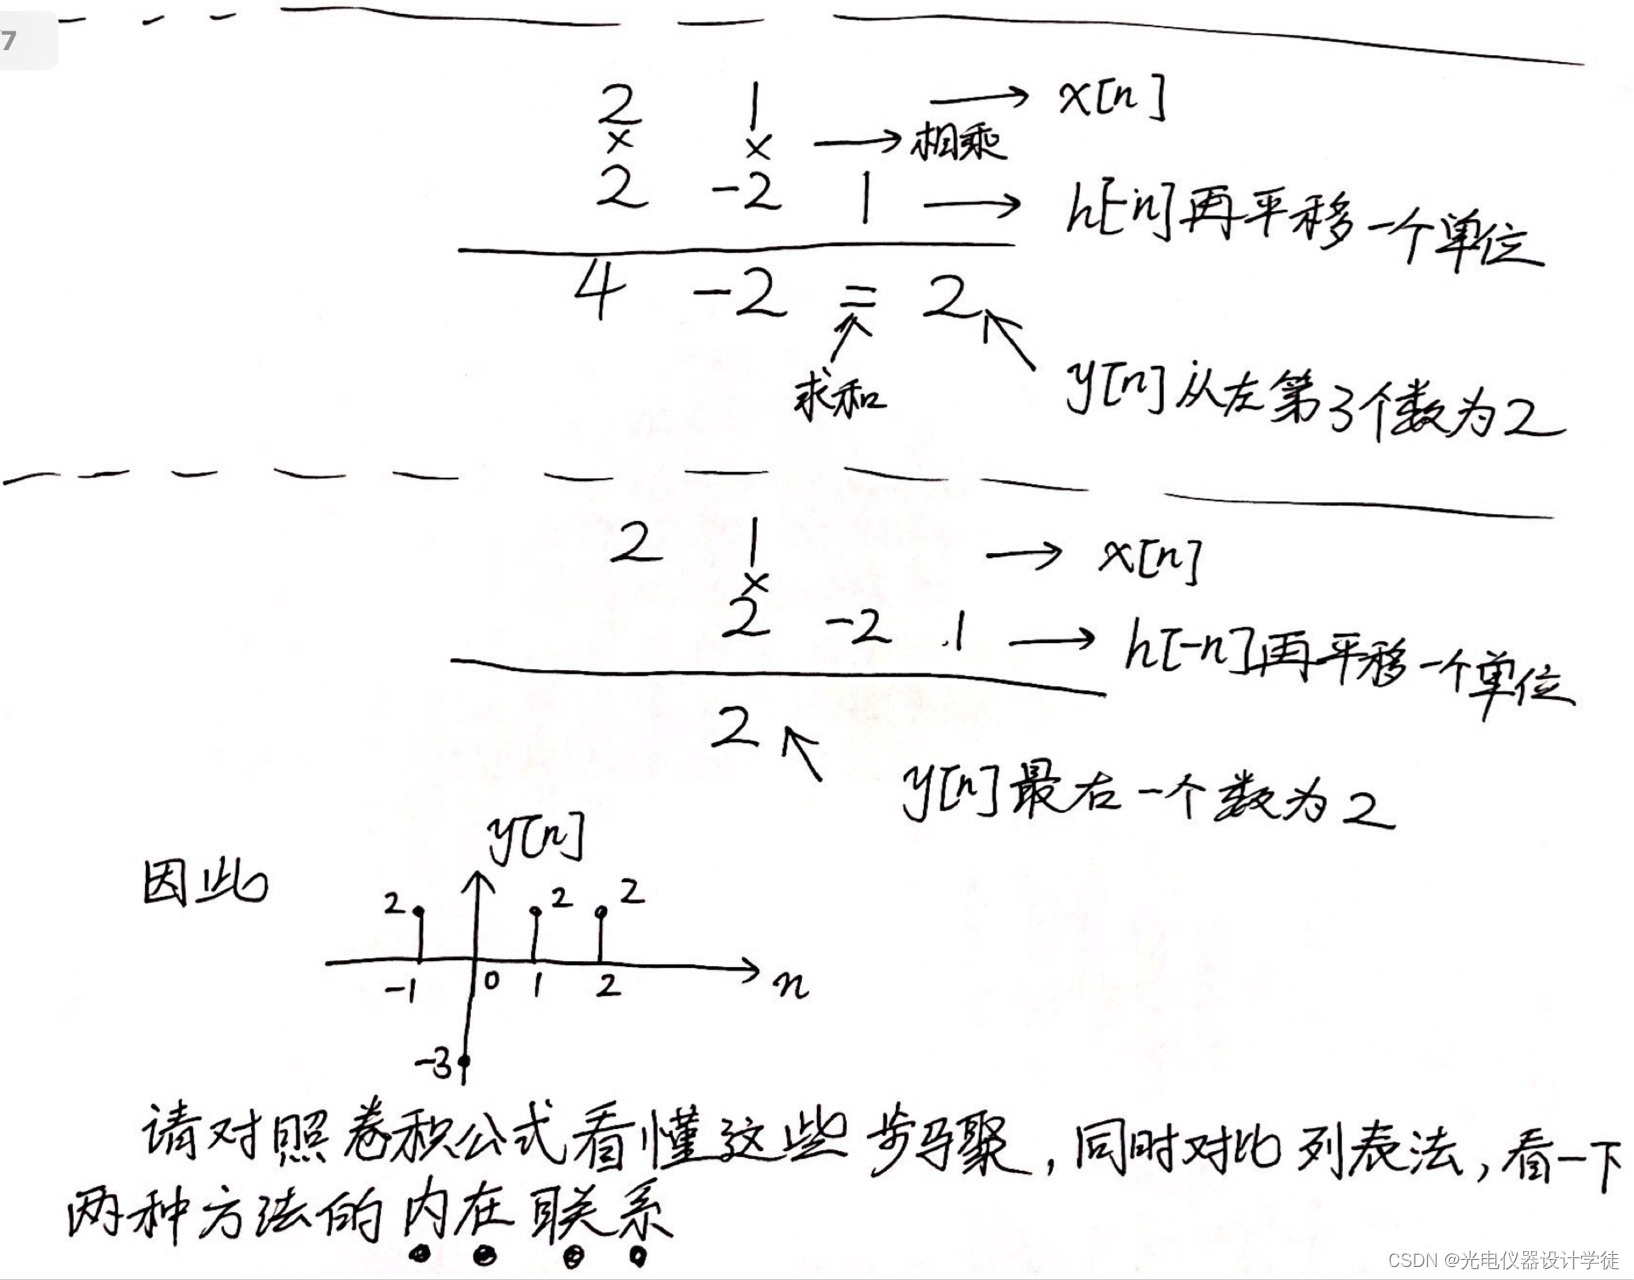 7
2 1 → x[n]
× × → 相乘
2 -2 1 → h[-n]再平移一个单位
4 -2 = 2
求和
y[n]从左第3个数为2
2 1 → x[n]
×
2 -2 1 → h[-n]再平移一个单位
2
y[n]最右一个数为2
因此
y[n]
2 2 2
-1 0 1 2 n
-3
请对照卷积公式看懂这些步骤,同时对比列表法,看一下
两种方法的内在联系
CSDN @光电仪器设计学徒